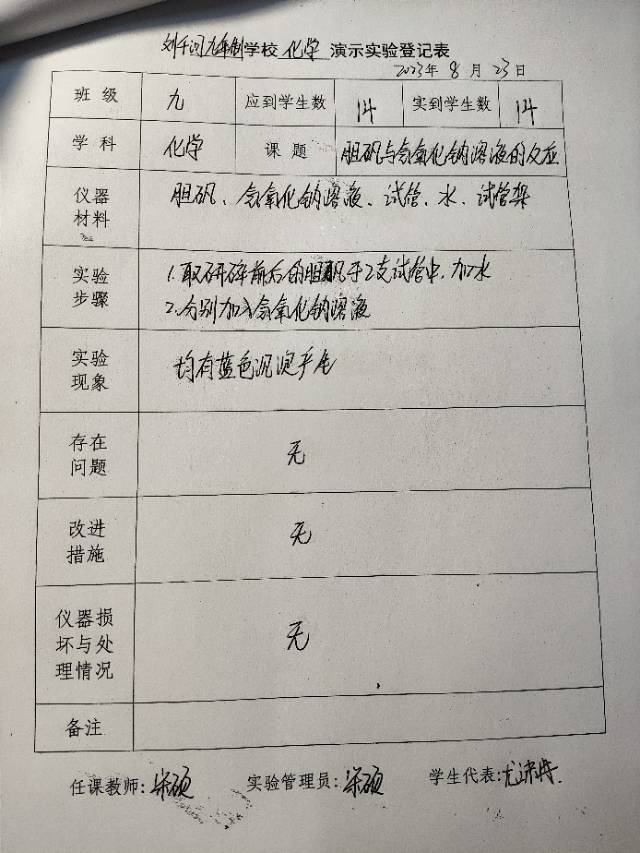 刘千河九年制学校 化学 演示实验登记表
2023年 8 月 23 日
班 级 九 应到学生数 14 实到学生数 14
学 科 化学 课 题 胆矾与氢氧化钠溶液的反应
仪器
材料
胆矾、氢氧化钠溶液、试管、水、试管架
实验
步骤
1.取研碎前后的胆矾于2支试管中,加水
2.分别加入氢氧化钠溶液
实验
现象
均有蓝色沉淀产生
存在
问题
无
改进
措施
无
仪器损
坏与处
理情况
无
备注
任课教师: 梁硕 实验管理员: 梁硕 学生代表: 尤